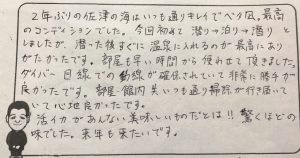 2年ぶりの佐津の海はいつも通りキレイでベタ凪、最高
のコンディションでした。今回初めて 潜り→泊り→潜り と
しましたが、潜った後すぐに温泉に入れるのが最高にあり
がたかったです。部屋も早い時間から使わせて頂きました。
ダイバー目線での動線が確保されていて非常に勝手が
良かったです。部屋・館内共いつも通り掃除が行き届いて
いて心地良かったです。
活イカがあんな美味しいものだとは!! 驚くほどの
味でした。来年も来たいです。